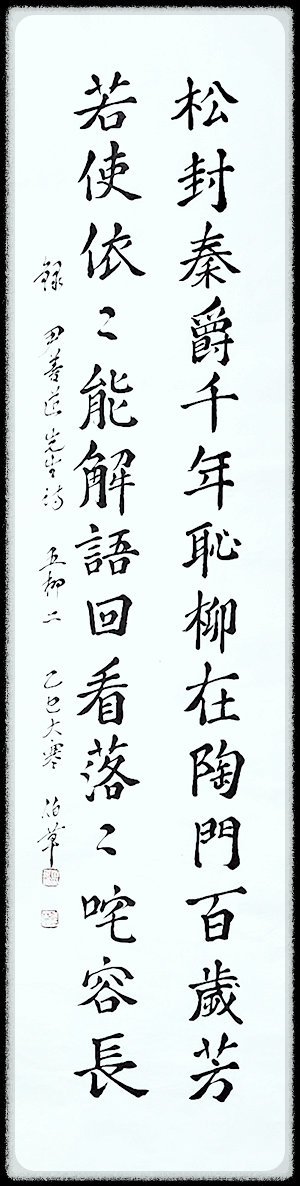 松封秦爵千年恥柳在陶門百歲芳
若使依〻能解語回看落〻咤容長
錄 尹善道先生詩 五柳二 乙巳大寒